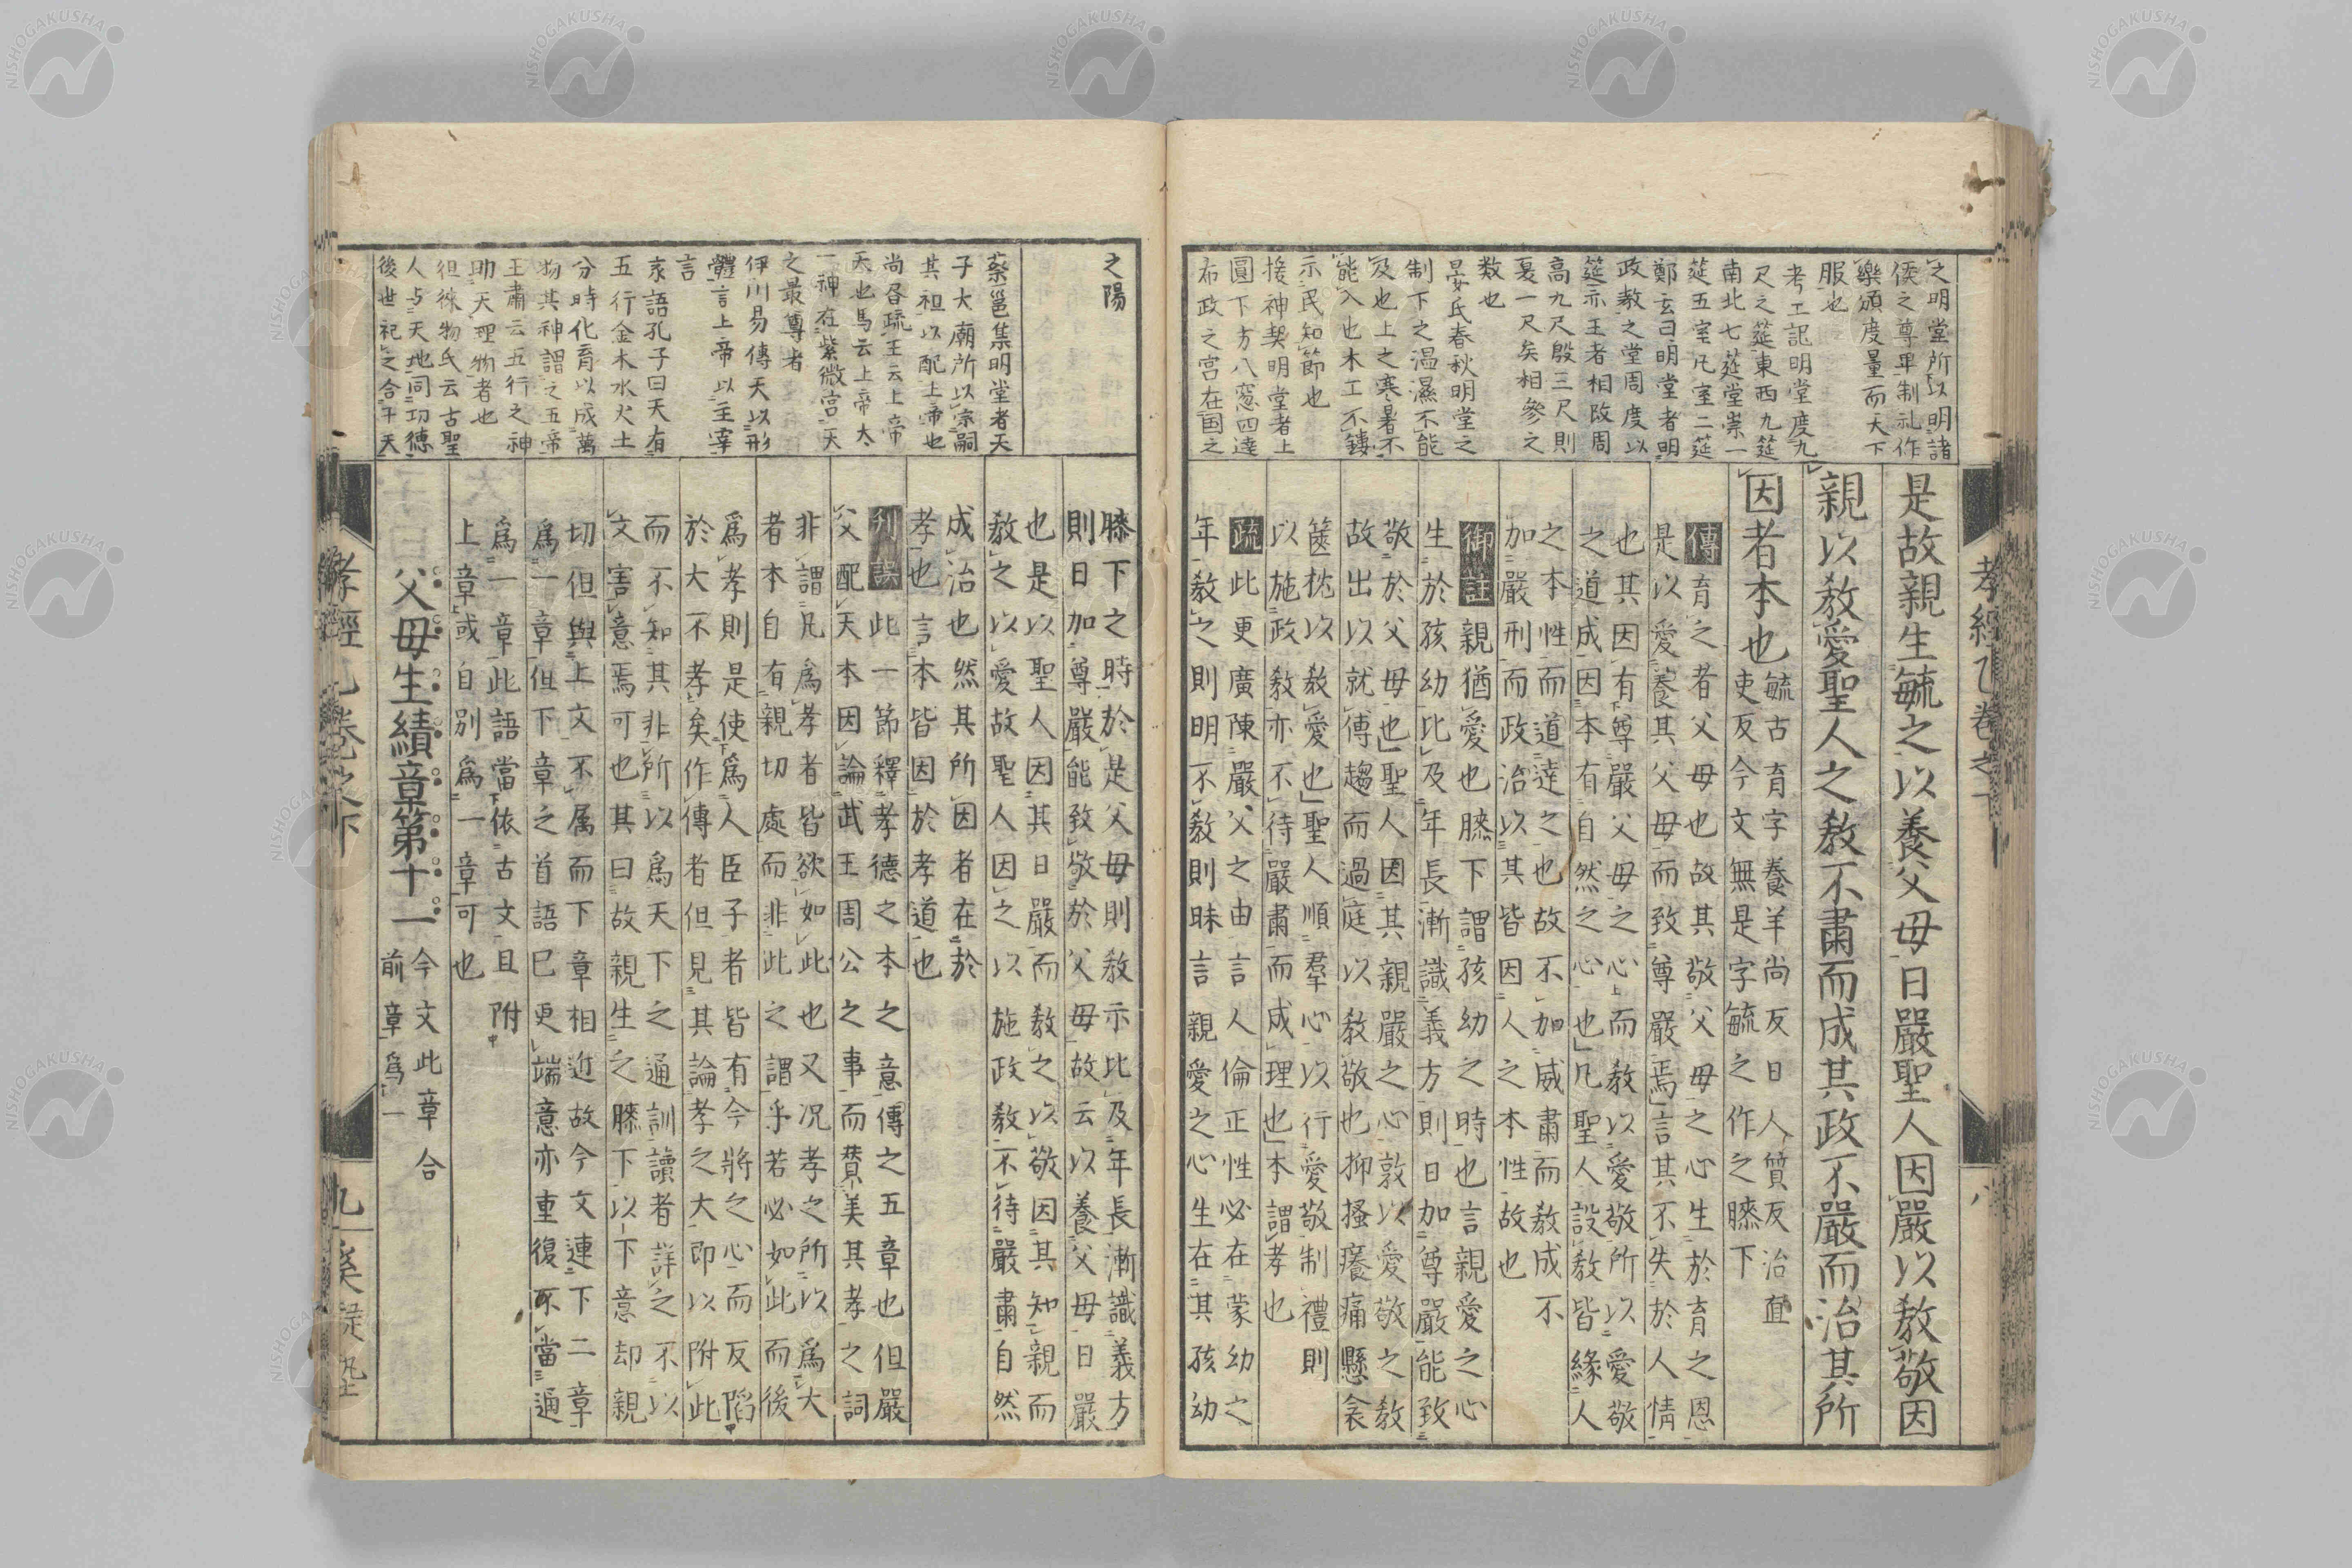 之明堂所以明諸
侯之尊卑制礼作
樂頒度量而天下
服也
考工記明堂度九
尺之筵東西九筵
南北七筵堂崇一
筵五室凡室二筵
鄭玄曰明堂者明
政教之堂周度以
筵示王者相改周
高九尺殷三尺則
夏一尺矣相參之
数也
晏氏春秋明堂之
制下之温濕不能
及也上之寒暑不
能入也木工不鏤
示民知節也
援神契明堂者上
圓下方八窓四達
布政之宮在国之
是故親生毓之以養父母日嚴聖人因嚴以教敬因
親以教愛聖人之教不肅而成其政不嚴而治其所
因者本也
毓古育字養羊尚反日人質反治直
吏反今文無是字毓之作之膝下
傳育之者父母也故其敬父母之心生於育之恩
是以愛養其父母而致尊嚴焉言其不失於人情
也其因有尊嚴父母之心而教以愛敬所以愛敬
之道成因本有自然之心也凡聖人設教皆緣人
之本性而道達之也故不加威肅而教成不
加嚴刑而政治以其皆因人之本性故也
御註親猶愛也膝下謂孩幼之時也言親愛之心
生於孩幼比及年長漸識義方則日加尊嚴能致
敬於父母也聖人因其親嚴之心敦以愛敬之教
故出以就傅趨而過庭以教敬也抑搔癢痛懸衾
篋枕以教愛也聖人順羣心以行愛敬制禮則
以施政教亦不待嚴肅而成理也本謂孝也
疏此更廣陳嚴父之由言人倫正性必在蒙幼之
年教之則明不教則昧言親愛之心生在其孩幼
孝經 卷之下
八
之陽
蔡邕集明堂者天
子大廟所以宗嗣
其祖以配上帝也
尚各疏王云上帝
天也馬云上帝太
一神在紫微宮天
之最尊者
伊川易傳天以形
體言上帝以主宰
言
家語孔子曰天有
五行金木水火土
分時化育以成萬
物其神謂之五帝
王肅云五行之神
助天理物者也
徂徠物氏云古聖
人与天地同功徳
後世祀之合于天
膝下之時於是父母則教示比及年長漸識義方
則日加尊嚴能致敬於父母故云以養父母日嚴
也是以聖人因其日嚴而教之以敬因其知親而
教之以愛故聖人因之以施政教不待嚴肅自然
成治也然其所因者在於
孝也言本皆因於孝道也
刋誤此一節釋孝德之本之意傳之五章也但嚴
父配天本因論武王周公之事而賛美其孝之詞
非謂凡爲孝者皆欲如此也又况孝之所以爲大
者本自有親切處而非此之謂乎若必如此而後
爲孝則是使爲人臣子者皆有今將之心而反陷
於大不孝矣作傳者但見其論孝之大即以附此
而不知其非所以爲天下之通訓讀者詳之不以
文害意焉可也其曰故親生之膝下以下意却親
切但與上文不属而下章相近故今文連下二章
爲一章但下章之首語巳更端意亦重復不當通
爲一章此語當依古文且附
上章或自別爲一章可也
父母生績章第十一
今文此章合
前章爲一
孝經 卷之下
九